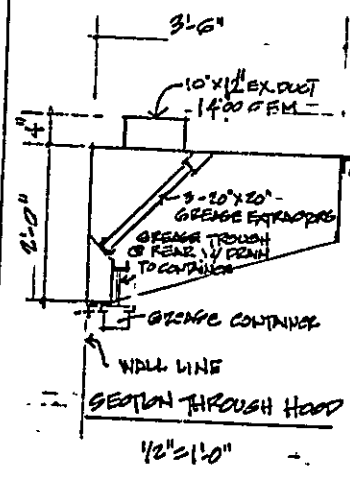 3'-6"
10"X12" EX. DUCT
1400 CFM
4"
3-20"X20"
GREASE EXTRACTORS
2'-0"
GREASE TROUGH
@ REAR W/ DRAIN
TO CONTAINER
GREASE CONTAINER
WALL LINE
SECTION THROUGH HOOD
1/2"=1'-0"